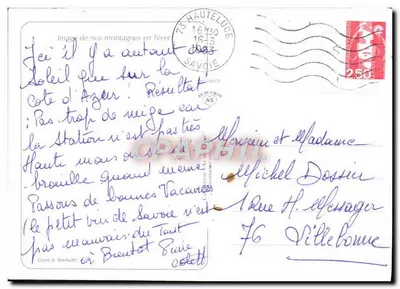 Image de nos montagnes en hiver
73 HAUTELUCE
16H30
16-3
1993
SAVOIE
2,50
Ici il y a autant
Soleil que sur la
Cote d'Azur! Résultat
: Pas trop de neige car
la Station n'est pas très
Haute mais on s'
brouille quand même
Passons de bonnes Vacances
(le petit vin de Savoie n'est
pas mauvais du Tout
à Bientôt Pierre
Colett
Monsieur et Madame
Michel Dossin
1 Rue H. Messager
76 Lillebonne
CPARAMA